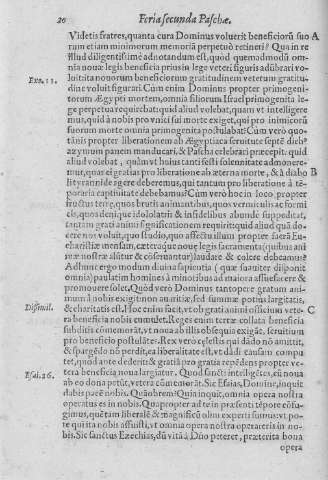 20 Feria secunda Paschæ.
Videtis fratres, quanta cura Dominus voluerit beneficiorū suo A
rum etiam minimorum memoriā perpetuò retineri? Qua in re
illud diligentissimè adnotandum est, quòd quemadmodū om-
nia nouæ legis beneficia prius in lege veteri figuris adūbrari vo-
Exo. 13. luit, ita nouorum beneficiorum gratitudinem veterum gratitu-
dine voluit figurari. Cùm enim Dominus propter primogeni-
torum Ægypti mortem, omnia filiorum Israel primogenita le-
ge perpetua requirebat: quid aliud volebat, quam vt intelligere
mus, quid à nobis pro vnici sui morte exiget, qui pro inimicorū
suorum morte omnia primogenita postulabat? Cùm verò quo-
tānis propter liberationem ab Ægyptiaca seruitute septē dieb⁹
azymum panem manducari, & Pascha celebrari præcepit: quid
aliud volebat, quàm vt huius tanti festi solennitate admonere-
mur, quas ei gratias pro liberatione ab æterna morte, & à diabo B
li tyrannide agere deberemus, qui tantum pro liberatione à tē-
poraria captiuitate debebamus? Cùm verò hoc in loco, propter
fructus terræ, quos brutis animantibus, quos vermiculis ac formi
cis, quos deniq; idololatris & infidelibus abundè suppeditat,
tantam grati animi significationem requirit: quid aliud quā do-
cere nos voluit, quo studio, quo affectu illam propter sacrā Eu-
charistiæ mensam, cæteraque nouæ legis sacramenta (quibus ani
mæ nostræ alūtur & cōseruantur) laudare & colere debeamus?
Ad hunc ergo modum diuina sapientia (quæ suauiter disponit
omnia) paulatim homines à minoribus ad maiora assuefacere &
promouere solet. Quòd verò Dominus tantopere gratum ani-
mum à nobis exigit, non auaritiæ, sed summæ potius largitatis,
Dissimil. & charitatis est. Hoc enim facit, vt ob grati animi officium vete- C
ra beneficia nobis cumulet. Reges enim terræ collata beneficia
subditis cōmemorāt, vt noua ab illis obsequia exigāt, seruitium
pro beneficio postulātes. Rex verò cælestis qui dādo nō amittit,
& spargēdo nō perdit, ea liberalitate est, vt dādi causam compu
tet, quòd ante dederit: & gratiā pro gratia repēdens propter ve-
tera beneficia noua largiatur. Quod sancti intelligētes, cū noua
Esai. 26. ab eo dona petūt, vetera cōmemorāt. Sic Esaias, Domine, inquit
dabis pacē nobis. Quāobrem? Quia inquit, omnia opera nostra
operatus es in nobis. Quapropter ad te in præsenti tēpore cōfu-
gimus, quē tam liberalē & magnificū olim experti sumus: vt po-
te qui ita nobis affuisti, vt omnia opera nostra operareris in no-
bis. Sic sanctus Ezechias, dū vitā à Dño peteret, præterita bona
opera